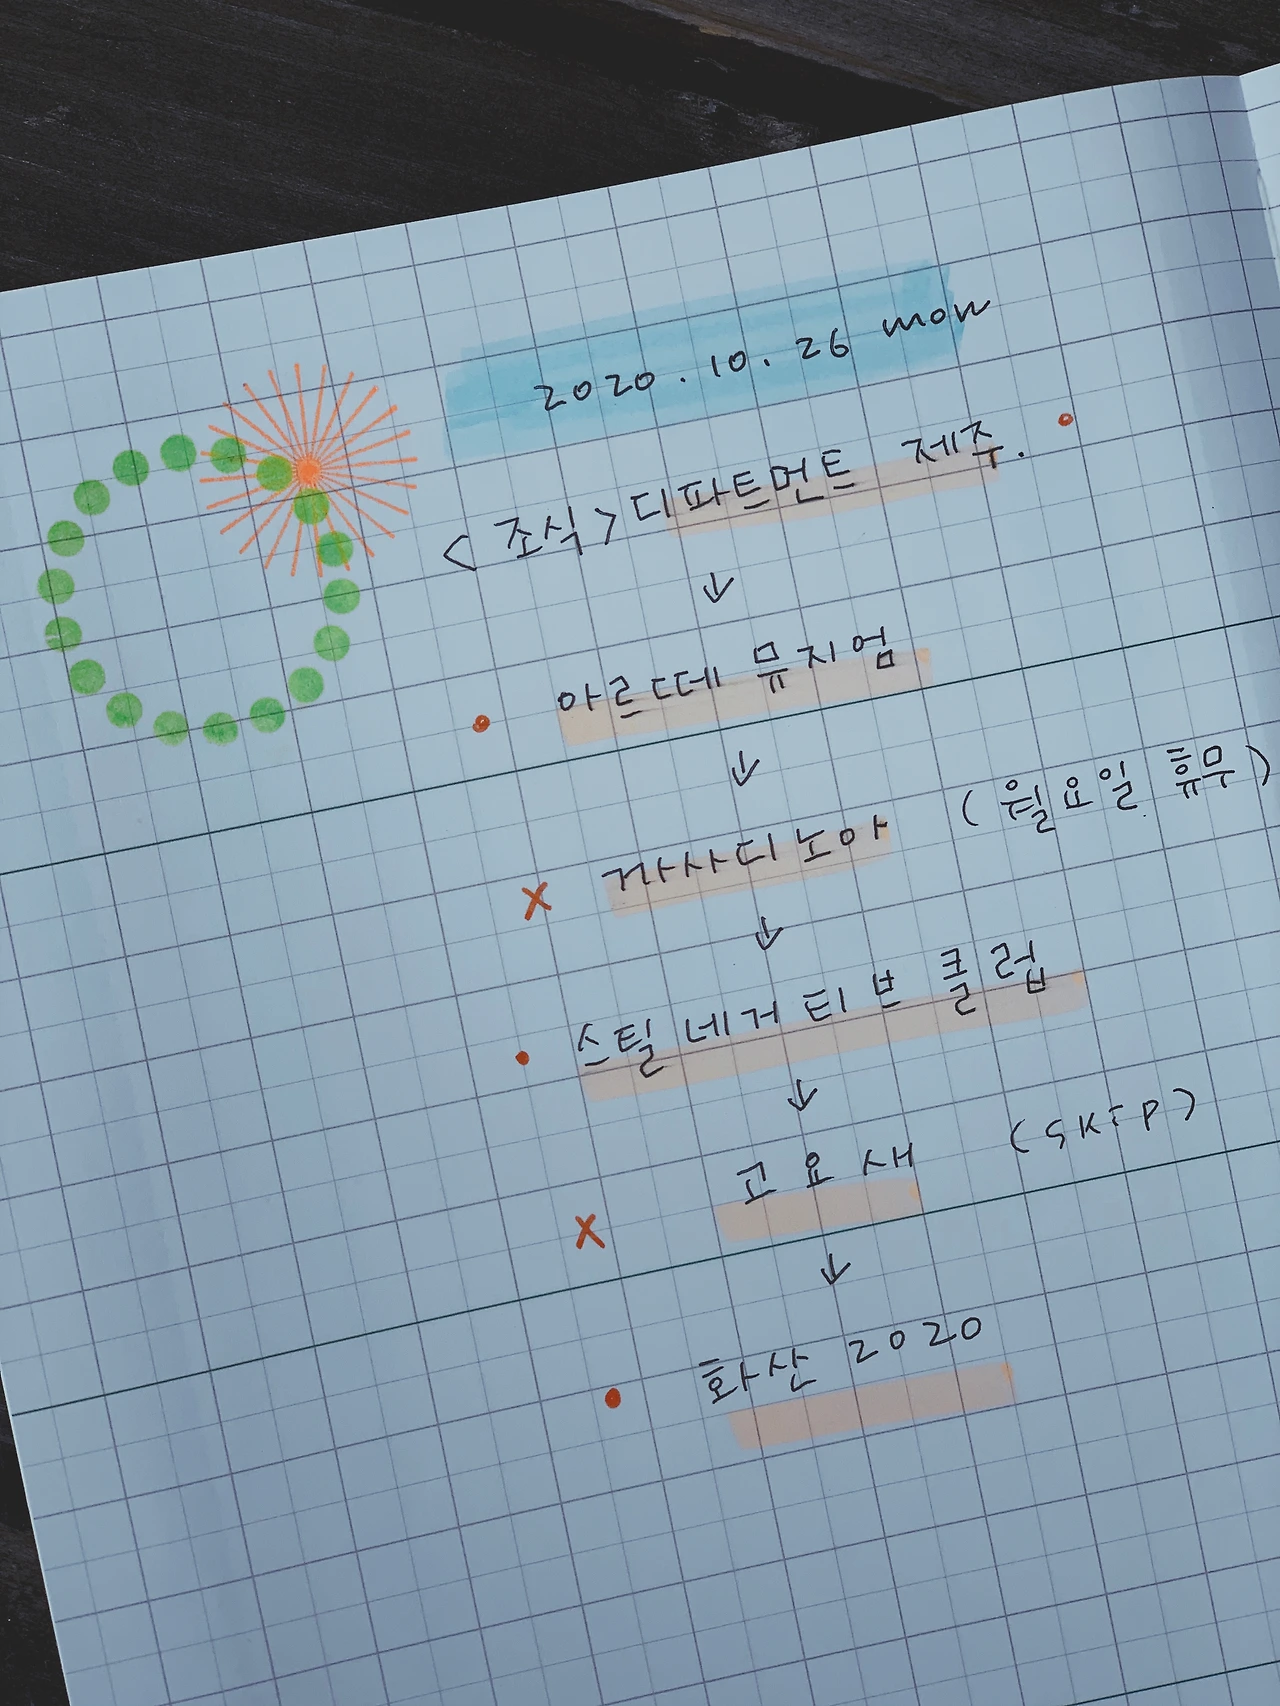 2020.10.26 mon
<조식> 디파트먼트 제주.
↓
아르떼 뮤지엄
↓
x 까사디노아 (월요일 휴무)
↓
스틸 네거티브 클럽
↓
x 고요새 (SKIP)
↓
화산 2020